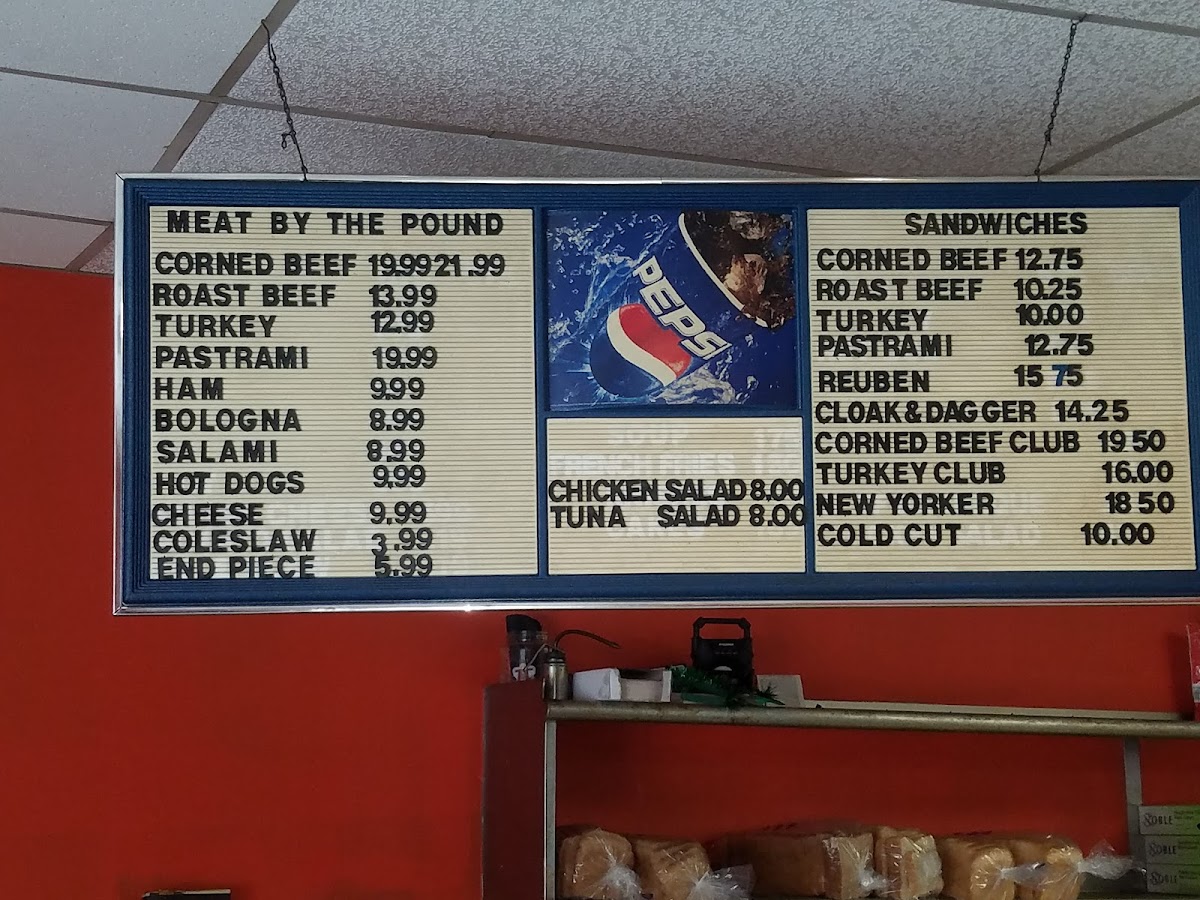 MEAT BY THE POUND
CORNED BEEF 19.99 21.99
ROAST BEEF 13.99
TURKEY 12.99
PASTRAMI 19.99
HAM 9.99
BOLOGNA 8.99
SALAMI 8.99
HOT DOGS 9.99
CHEESE 9.99
COLESLAW 3.99
END PIECE 5.99
PEPSI
SOUP
FRENCH FRIES
CHICKEN SALAD 8.00
TUNA SALAD 8.00
SANDWICHES
CORNED BEEF 12.75
ROAST BEEF 10.25
TURKEY 10.00
PASTRAMI 12.75
REUBEN 15 75
CLOAK & DAGGER 14.25
CORNED BEEF CLUB 19 50
TURKEY CLUB 16.00
NEW YORKER 18 50
COLD CUT 10.00
NOBLE
NOBLE
NOBLE